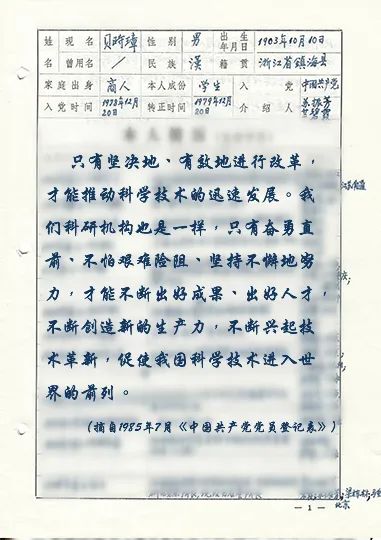 姓 现名 贝时璋 性别 男 出生年月日 1903年10月10日
名 曾用名 / 民族 漢 籍贯 浙江省镇海县
家庭出身 商人 本人成份 学生 入党 中国共产党
入党时间 1978年12月20日 转正时间 1979年12月20日 介绍人
只有坚决地、有效地进行改革，
才能推动科学技术的迅速发展。我
们科研机构也是一样，只有奋勇直
前、不怕艰难险阻、坚持不懈地努
力，才能不断出好成果、出好人才，
不断创造新的生产力，不断兴起技
术革新，促使我国科学技术进入世
界的前列。
（摘自1985年7月《中国共产党党员登记表》）
— 1 —
北京